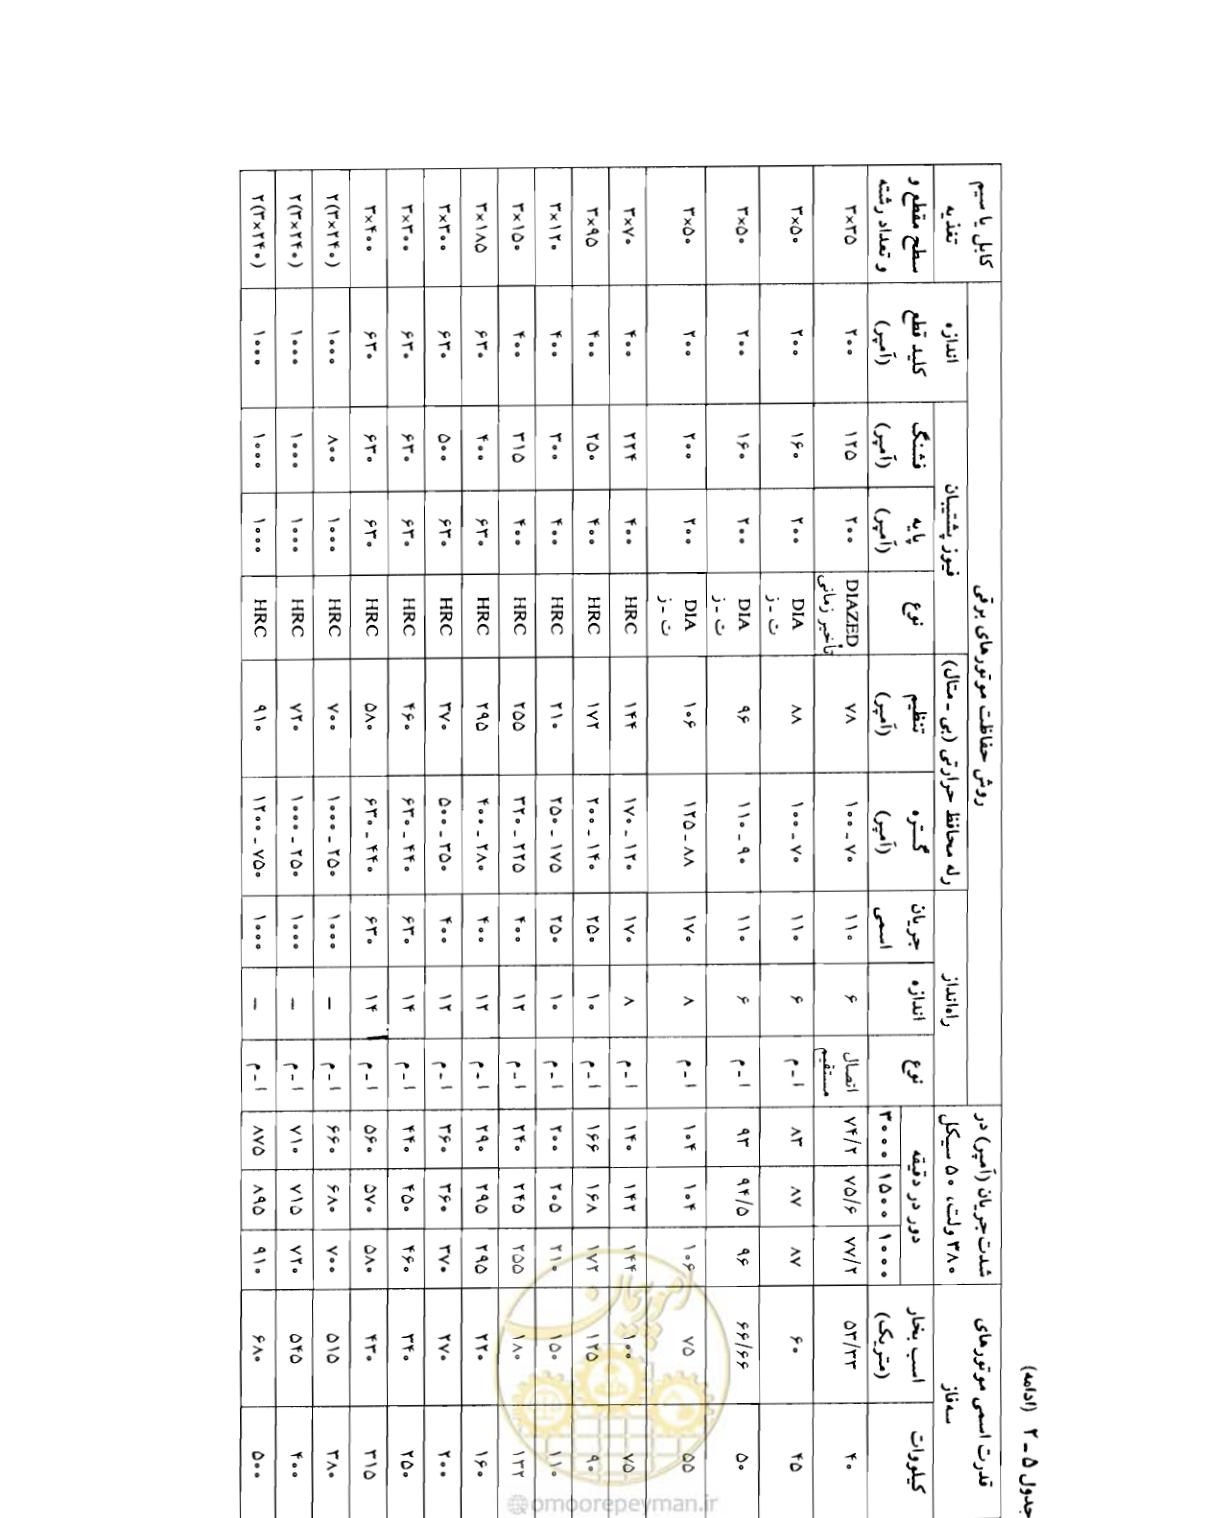 جدول ۵ ـ ۲ (ادامه)
قدرت اسمی موتورهای سه‌فاز
شدت جریان (آمپر) در ۳۸۰ ولت، ۵۰ سیکل
روش حفاظت موتورهای برقی
کابل یا سیم تغذیه
راه‌انداز
رله محافظ حرارتی (بی ـ متال)
فیوز پشتیبان
اندازه کلید قطع (آمپر)
سطح مقطع و و تعداد رشته
کیلووات
اسب بخار (متریک)
دور در دقیقه
۱۰۰۰ ۱۵۰۰ ۳۰۰۰
نوع
اندازه
جریان اسمی
گستره (آمپر)
تنظیم (آمپر)
نوع
پایه (آمپر)
فشنگ (آمپر)
۴۰ ۵۳/۳۳ ۷۷/۲ ۷۵/۶ ۷۴/۲ اتصال مستقیم ۶ ۱۱۰ ۷۰ ـ ۱۰۰ ۷۸ DIAZED تأخیر زمانی ۲۰۰ ۱۲۵ ۲۰۰ ۳×۳۵
۴۵ ۶۰ ۸۷ ۸۷ ۸۳ ا ـ م ۶ ۱۱۰ ۷۰ ـ ۱۰۰ ۸۸ DIA ت ـ ز ۲۰۰ ۱۶۰ ۲۰۰ ۳×۵۰
۵۰ ۶۶/۶۶ ۹۶ ۹۴/۵ ۹۳ ا ـ م ۶ ۱۱۰ ۹۰ ـ ۱۱۰ ۹۶ DIA ت ـ ز ۲۰۰ ۱۶۰ ۲۰۰ ۳×۵۰
۵۵ ۷۵ ۱۰۶ ۱۰۴ ۱۰۴ ا ـ م ۸ ۱۷۰ ۸۸ ـ ۱۲۵ ۱۰۶ DIA ت ـ ز ۲۰۰ ۲۰۰ ۲۰۰ ۳×۵۰
۷۵ ۱۰۰ ۱۴۴ ۱۴۲ ۱۴۰ ا ـ م ۸ ۱۷۰ ۱۲۰ ـ ۱۷۰ ۱۴۴ HRC ۴۰۰ ۲۲۴ ۴۰۰ ۳×۷۰
۹۰ ۱۲۵ ۱۷۲ ۱۶۸ ۱۶۶ ا ـ م ۱۰ ۲۵۰ ۱۴۰ ـ ۲۰۰ ۱۷۲ HRC ۴۰۰ ۲۵۰ ۴۰۰ ۳×۹۵
۱۱۰ ۱۵۰ ۲۱۰ ۲۰۵ ۲۰۰ ا ـ م ۱۰ ۲۵۰ ۱۷۵ ـ ۲۵۰ ۲۱۰ HRC ۴۰۰ ۳۰۰ ۴۰۰ ۳×۱۲۰
۱۳۲ ۱۸۰ ۲۵۵ ۲۴۵ ۲۴۰ ا ـ م ۱۲ ۴۰۰ ۲۲۵ ـ ۳۲۰ ۲۵۵ HRC ۴۰۰ ۳۱۵ ۴۰۰ ۳×۱۵۰
۱۶۰ ۲۲۰ ۲۹۵ ۲۹۵ ۲۹۰ ا ـ م ۱۲ ۴۰۰ ۲۸۰ ـ ۴۰۰ ۲۹۵ HRC ۶۳۰ ۴۰۰ ۶۳۰ ۳×۱۸۵
۲۰۰ ۲۷۰ ۳۷۰ ۳۶۰ ۳۶۰ ا ـ م ۱۲ ۴۰۰ ۳۵۰ ـ ۵۰۰ ۳۷۰ HRC ۶۳۰ ۵۰۰ ۶۳۰ ۳×۳۰۰
۲۵۰ ۳۴۰ ۴۶۰ ۴۵۰ ۴۴۰ ا ـ م ۱۴ ۶۳۰ ۴۴۰ ـ ۶۳۰ ۴۶۰ HRC ۶۳۰ ۶۳۰ ۶۳۰ ۳×۳۰۰
۳۱۵ ۴۳۰ ۵۸۰ ۵۷۰ ۵۶۰ ا ـ م ۱۴ ۶۳۰ ۴۴۰ ـ ۶۳۰ ۵۸۰ HRC ۶۳۰ ۶۳۰ ۶۳۰ ۳×۴۰۰
۳۸۰ ۵۱۵ ۷۰۰ ۶۸۰ ۶۶۰ ا ـ م – ۱۰۰۰ ۲۵۰ ـ ۱۰۰۰ ۷۰۰ HRC ۱۰۰۰ ۸۰۰ ۱۰۰۰ ۲(۳×۲۴۰)
۴۰۰ ۵۴۵ ۷۲۰ ۷۱۵ ۷۱۰ ا ـ م – ۱۰۰۰ ۲۵۰ ـ ۱۰۰۰ ۷۲۰ HRC ۱۰۰۰ ۱۰۰۰ ۱۰۰۰ ۲(۳×۲۴۰)
۵۰۰ ۶۸۰ ۹۱۰ ۸۹۵ ۸۷۵ ا ـ م – ۱۰۰۰ ۷۵۰ ـ ۱۲۰۰ ۹۱۰ HRC ۱۰۰۰ ۱۰۰۰ ۱۰۰۰ ۲(۳×۲۴۰)
امور پیمان
@omoorepeyman.ir